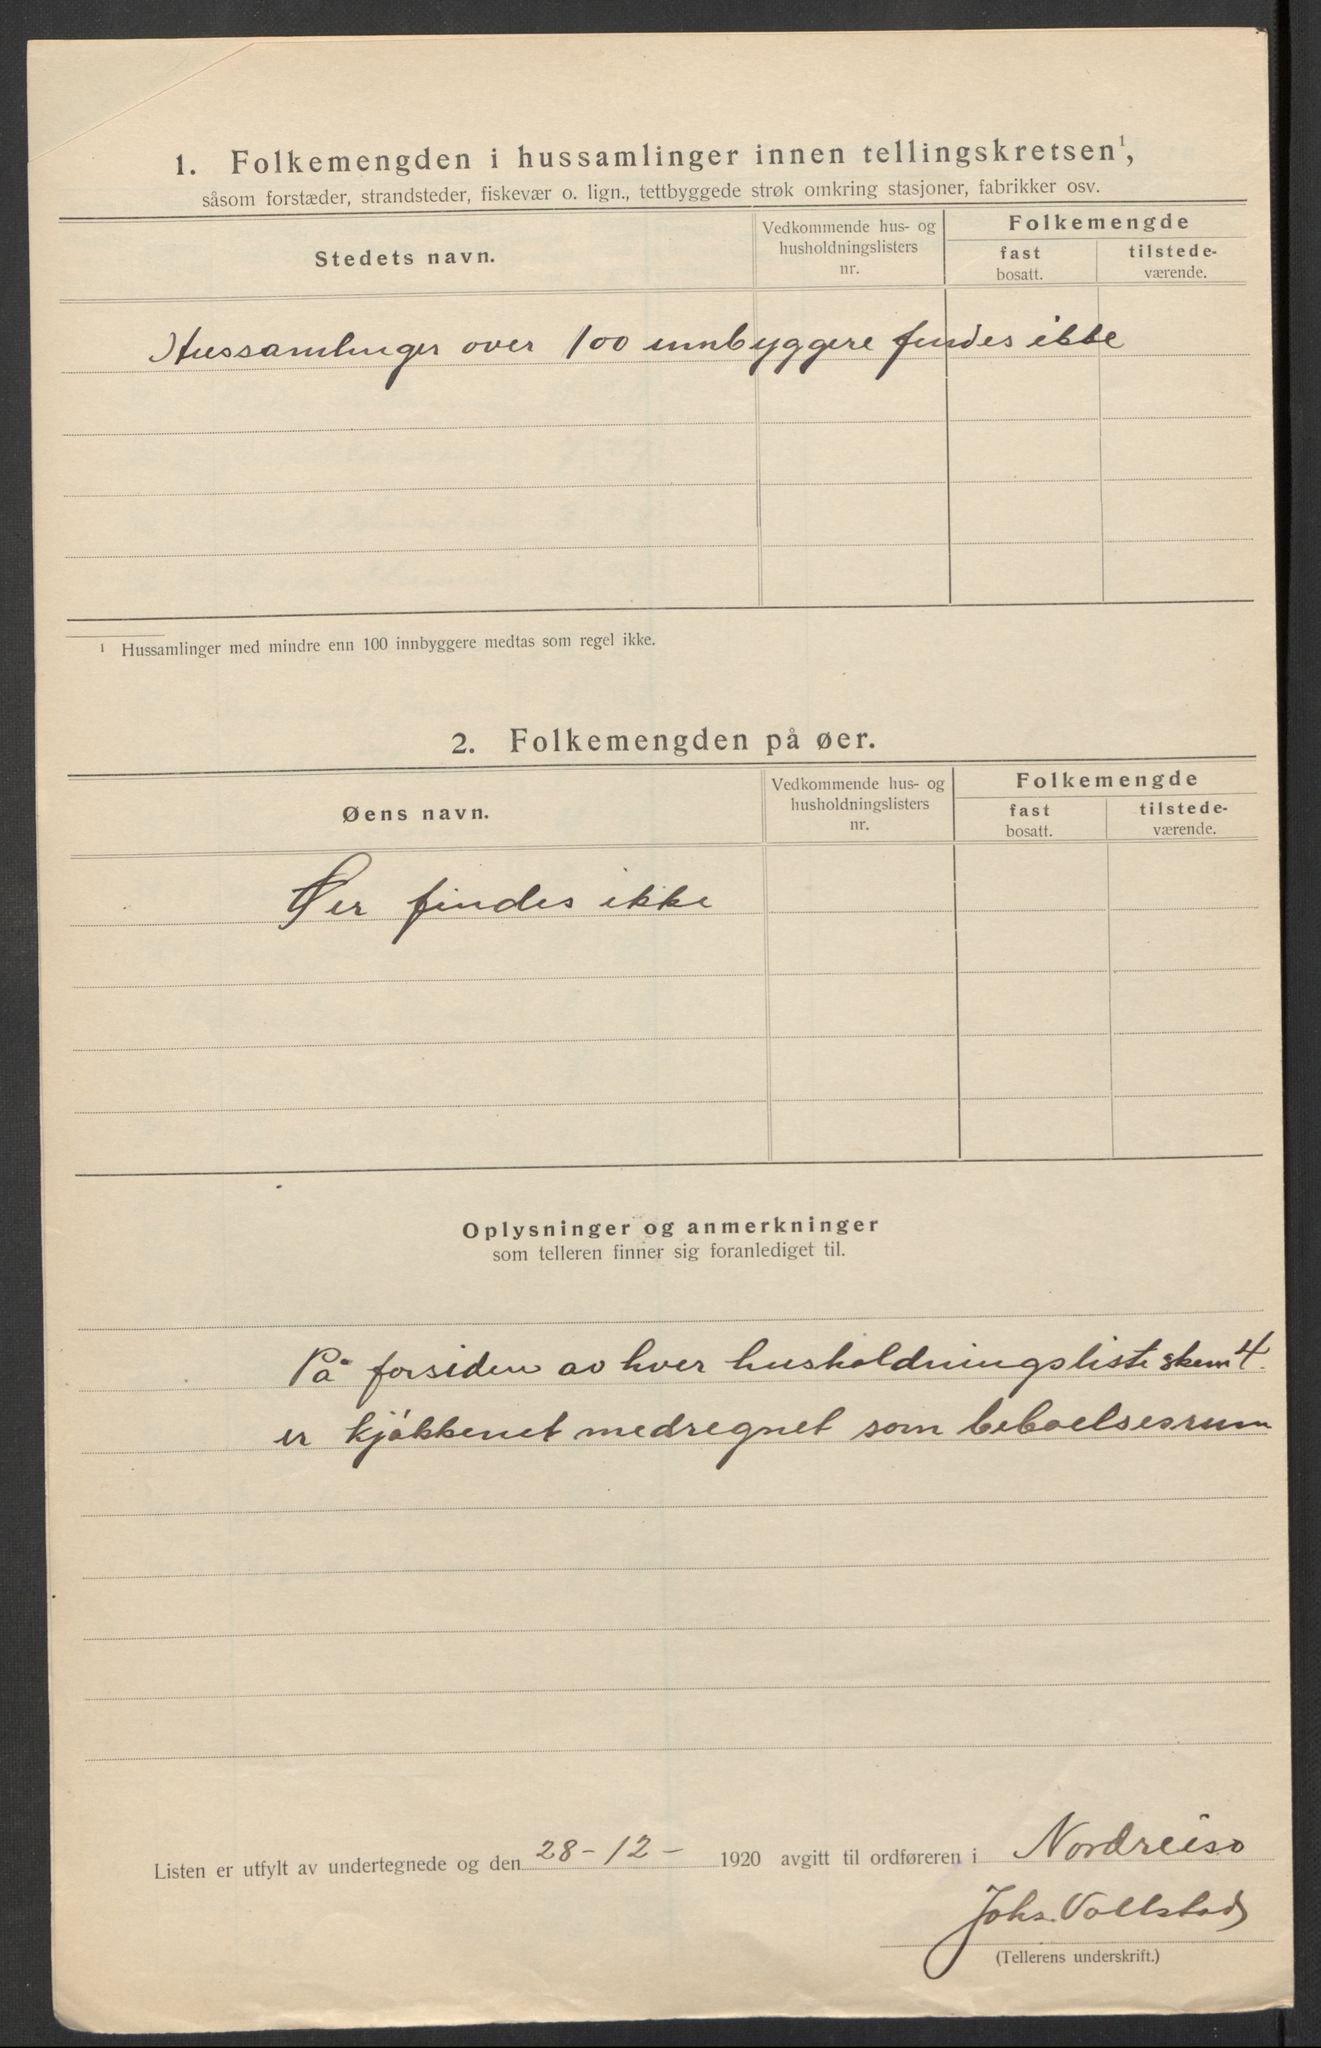 1. Folkemengden i hussamlinger innen tellingskretsen¹,
såsom forstæder, strandsteder, fiskevær o. lign., tettbyggede strøk omkring stasjoner, fabrikker osv.
Stedets navn.
Vedkommende hus- og
husholdningslisters
nr.
Folkemengde
fast
bosatt.
tilstede-
værende.
Hussamlinger over 100 innbyggere findes ikke
¹ Hussamlinger med mindre enn 100 innbyggere medtas som regel ikke.
2. Folkemengden på øer.
Øens navn.
Vedkommende hus- og
husholdningslisters
nr.
Folkemengde
fast
bosatt.
tilstede-
værende.
Øer findes ikke
Oplysninger og anmerkninger
som telleren finner sig foranlediget til.
På forsiden av hver husholdningsliste skem 4.
er kjøkkenet medregnet som beboelsesrum
Listen er utfylt av undertegnede og den 28-12- 1920 avgitt til ordføreren i Nordreisa
Johs. Vollstad
(Tellerens underskrift.)